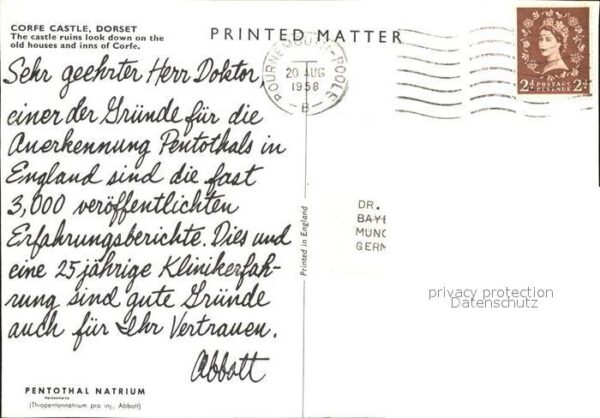 CORFE CASTLE, DORSET
The castle ruins look down on the
old houses and inns of Corfe.
PRINTED MATTER
BOURNEMOUTH-POOLE
20 AUG
1958
B
POSTAGE
REVENUE
2D 2D
Sehr geehrter Herr Doktor,
einer der Gründe für die
Anerkennung Pentothals in
England sind die fast
3,000 veröffentlichten
Erfahrungsberichte. Dies und
eine 25jährige Klinikerfah-
rung sind gute Gründe
auch für Ihr Vertrauen.
Abbott
PENTOTHAL NATRIUM
(Thiopentonnatrium pro inj., Abbott)
Printed in England
DR.
BAYE
MUNC
GERM
privacy protection
Datenschutz